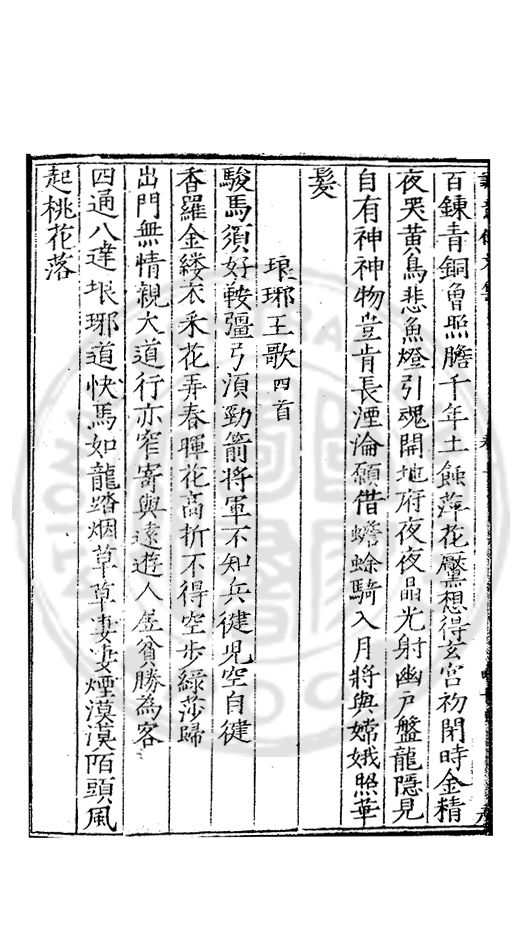 百鍊青銅曾照膽千年土蝕萍花黶想得玄宮初閉時金精
夜哭黃鳥悲魚燈引魂開地府夜夜晶光射幽戶盤龍隱見
自有神神物豈肯長湮淪願借蟾蜍騎入月將與嫦娥照華
髮
琅琊王歌四首
駿馬須好鞍彊弓湏勁箭將軍不知兵健兒空自健
香羅金縷衣釆花弄春暉花高折不得空步綠莎歸
出門無情親大道行亦窄寄與遠遊人居貧勝為客
四通八達垠琊道快馬如龍踏烟草草凄凄煙漠漠陌頭風
起桃花落